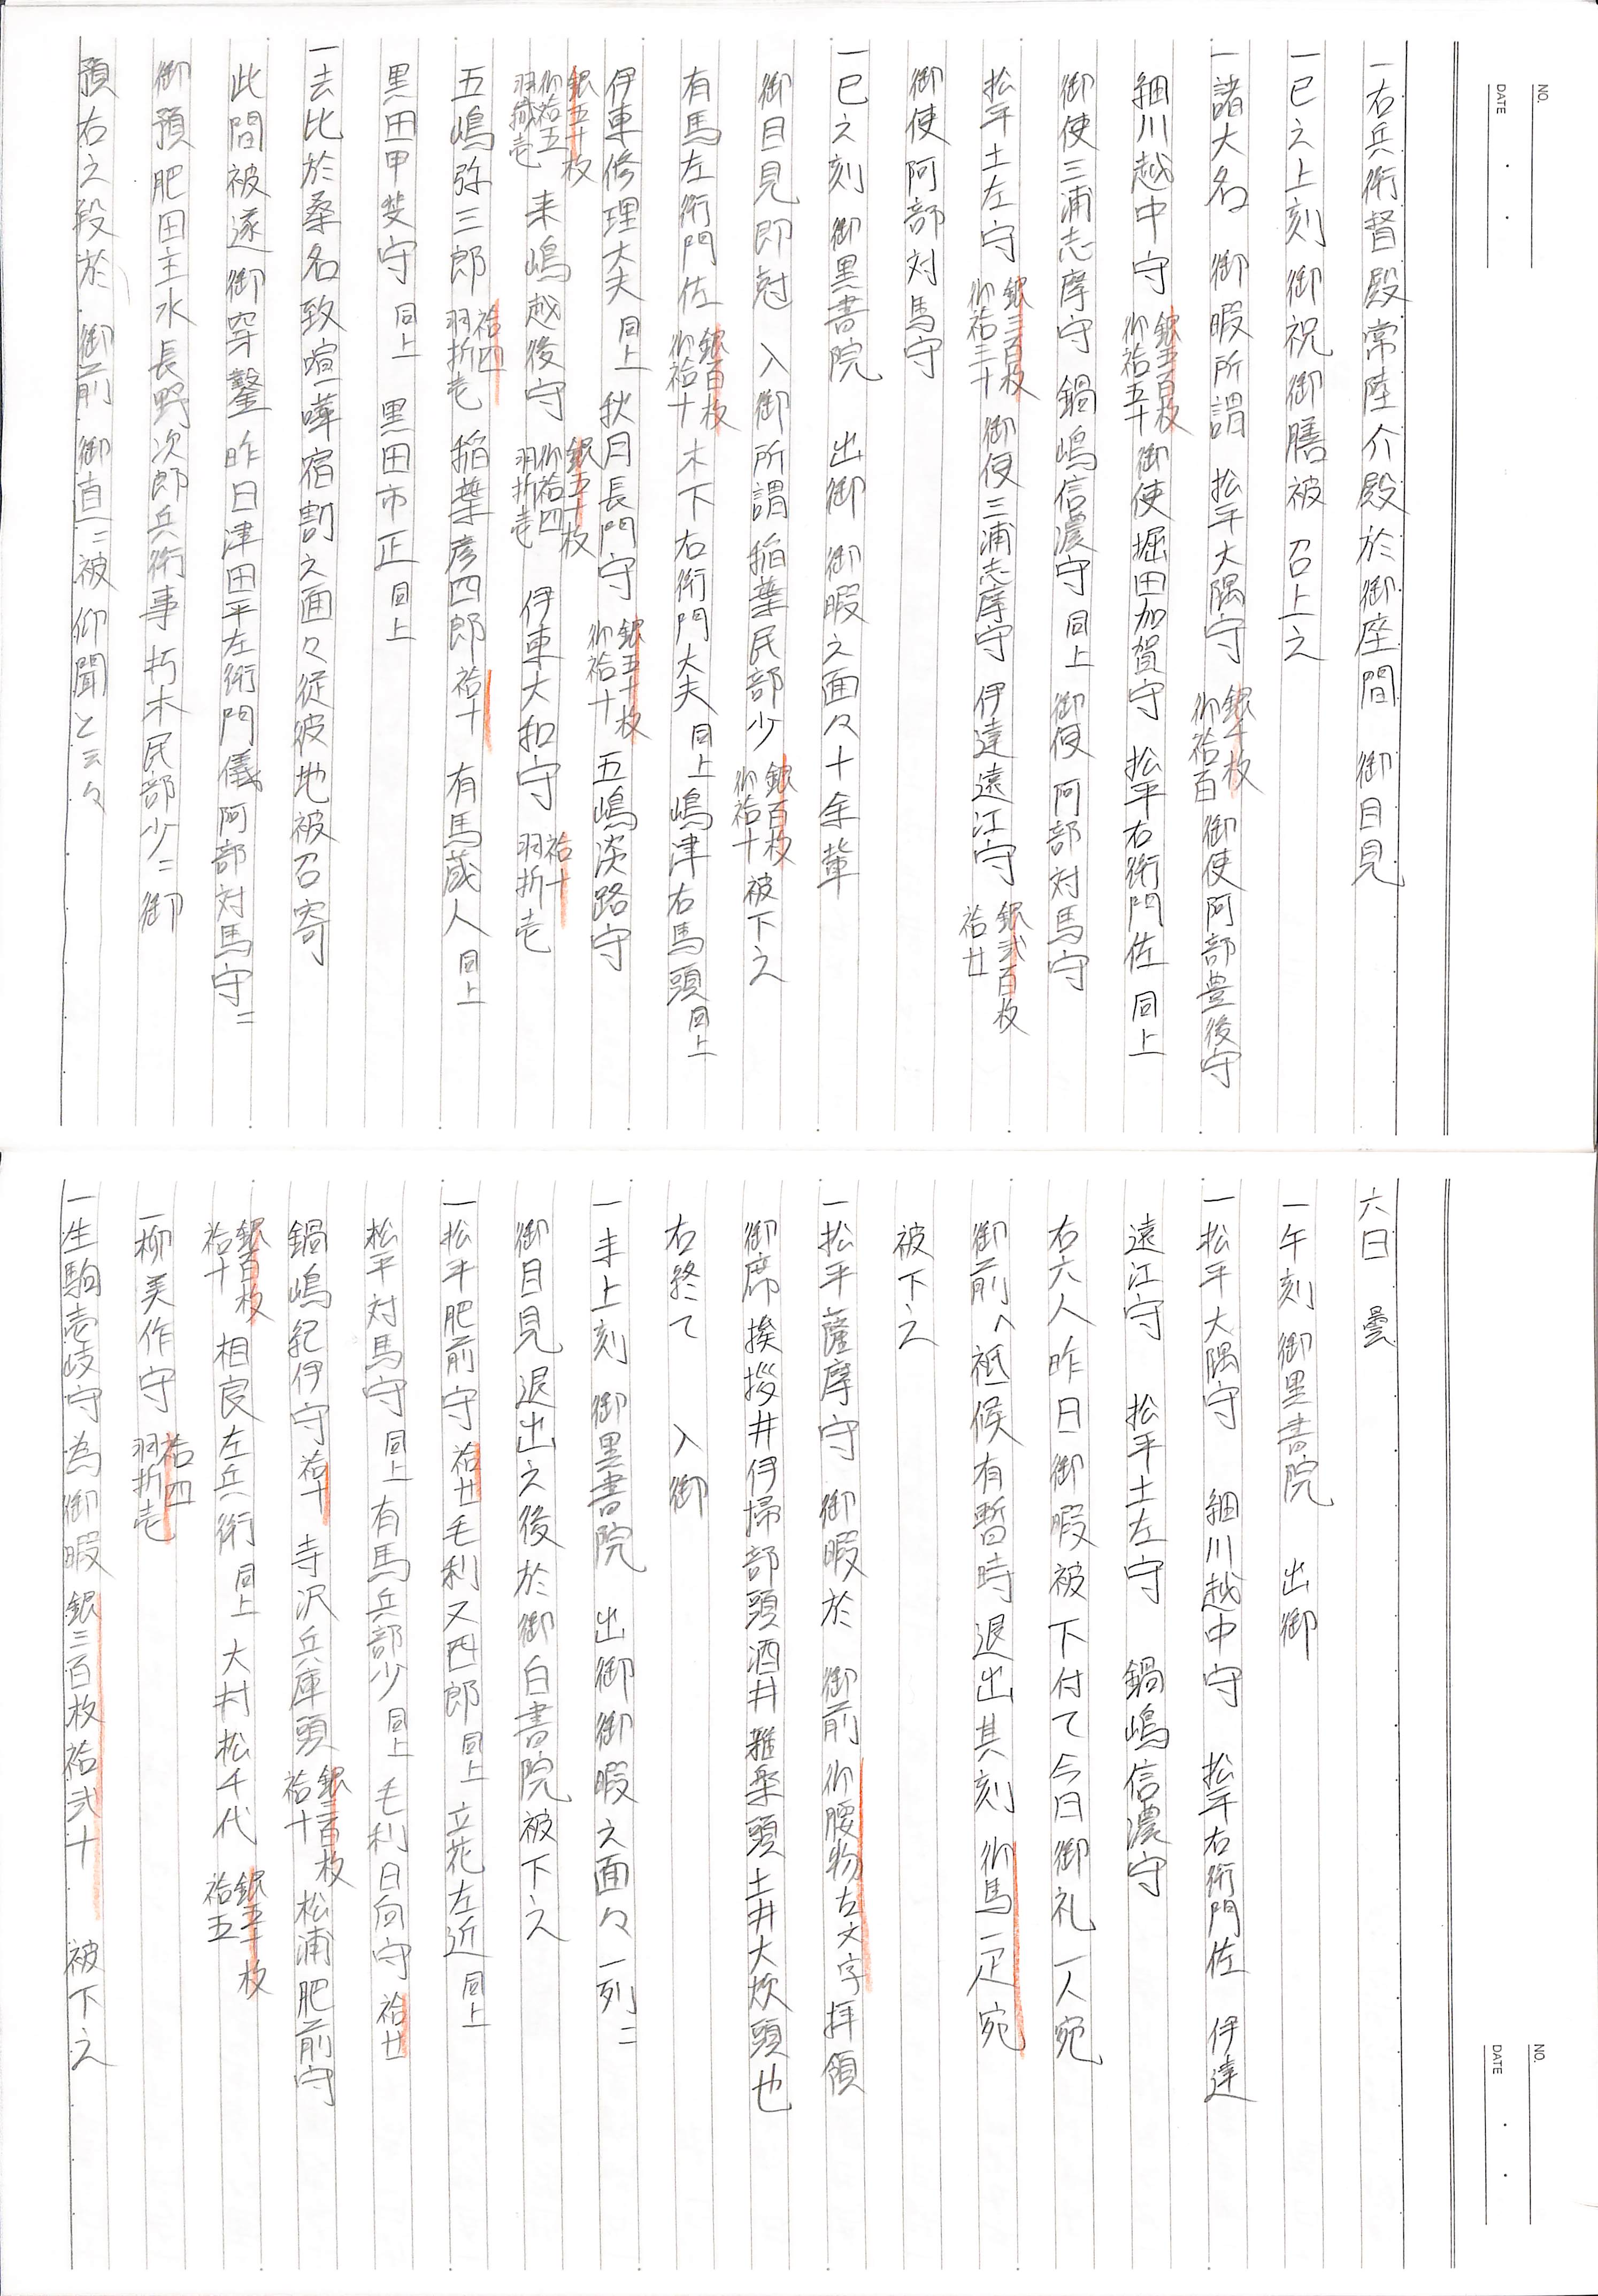 NO.
DATE
一右兵衛督殿常陸介殿於御座間 御目見
一巳之上刻御祝御膳被 召上之
一諸大名 御暇所謂 松平大隅守 銀千枚 御袷百 御使阿部豊後守
細川越中守 銀五百枚 御袷五十 御使堀田加賀守 松平右衛門佐 同上
御使三浦志摩守 鍋嶋信濃守 同上 御使阿部対馬守
松平土左守 銀三百枚 御袷三十 御使三浦志摩守 伊達遠江守 銀弐百枚 袷廿
御使阿部対馬守
一巳之刻御黒書院 出御 御暇之面々十余輩
御目見即尅 入御所謂稲葉民部少 銀百枚 御袷十 被下之
有馬左衛門佐 銀百枚 御袷十 木下右衛門大夫 同上 嶋津右馬頭 同上
伊東修理大夫 同上 秋月長門守 銀五十枚 御袷十 五嶋淡路守
銀五十枚 御袷五 羽織壱 来嶋越後守 銀五十枚 御袷四 羽折壱 伊東大和守 袷十 羽折壱
五嶋弥三郎 袷四 羽折壱 稲葉彦四郎 袷十 有馬蔵人 同上
黒田甲斐守 同上 黒田市正 同上
一去比於桑名致喧嘩宿割之面々従彼地被召寄
此間被遂御穿鑿昨日津田平左衛門儀阿部対馬守ニ
御預肥田主水長野次郎兵衛事朽木民部少ニ御
預右之段於 御前 御直ニ被仰聞と云々
NO.
DATE
六日 曇
一午刻御黒書院 出御
一松平大隅守 細川越中守 松平右衛門佐 伊達
遠江守 松平土左守 鍋嶋信濃守
右六人昨日御暇被下付て今日御礼一人宛
御前へ祗候有暫時退出其刻 御馬一疋宛
被下之
一松平薩摩守 御暇於 御前 御腰物左文字拝領
御席挨拶井伊掃部頭酒井雅楽頭土井大炊頭也
右終て 入御
一未上刻 御黒書院 出御御暇之面々一列ニ
御目見退出之後於御白書院被下之
一松平肥前守 袷廿 毛利又四郎 同上 立花左近 同上
松平対馬守 同上 有馬兵部少 同上 毛利日向守 袷廿
鍋嶋紀伊守 袷十 寺沢兵庫頭 銀三百枚 袷十 松浦肥前守
銀百枚 袷十 相良左兵衛 同上 大村松千代 銀五十枚 袷五
一柳美作守 袷四 羽折壱
一生駒壱岐守為御暇銀三百枚袷弐十 被下之